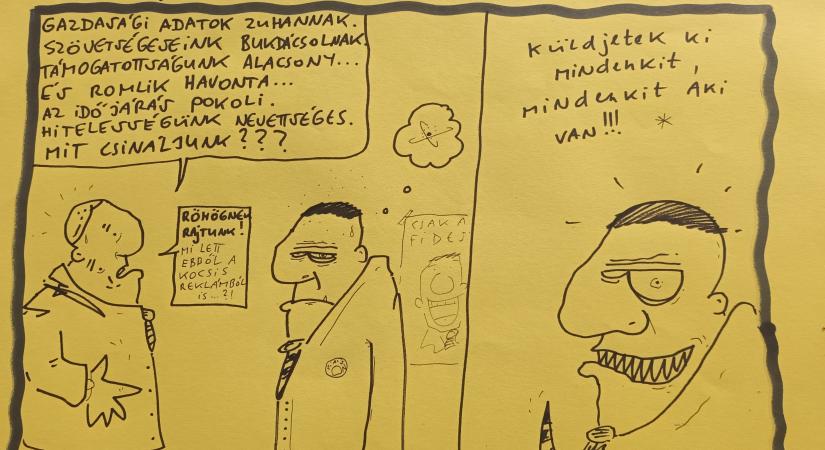 GAZDASÁGI ADATOK ZUHANNAK.
SZÖVETSÉGESEINK BUKDÁCSOLNAK.
TÁMOGATOTTSÁGUNK ALACSONY...
ÉS ROMLIK HAVONTA...
AZ IDŐJÁRÁS POKOLI.
HITELESSÉGÜNK NEVETTSÉGES.
MIT CSINÁLJUNK???
RÖHÖGNEK
RAJTUNK!
MI LETT
EBBŐL A
KOCSIS
REKLÁMBÓL
IS...?!
CSAK A
FIDES
KÜLDJETEK KI
MINDENKIT,
MINDENKIT AKI
VAN!!! *